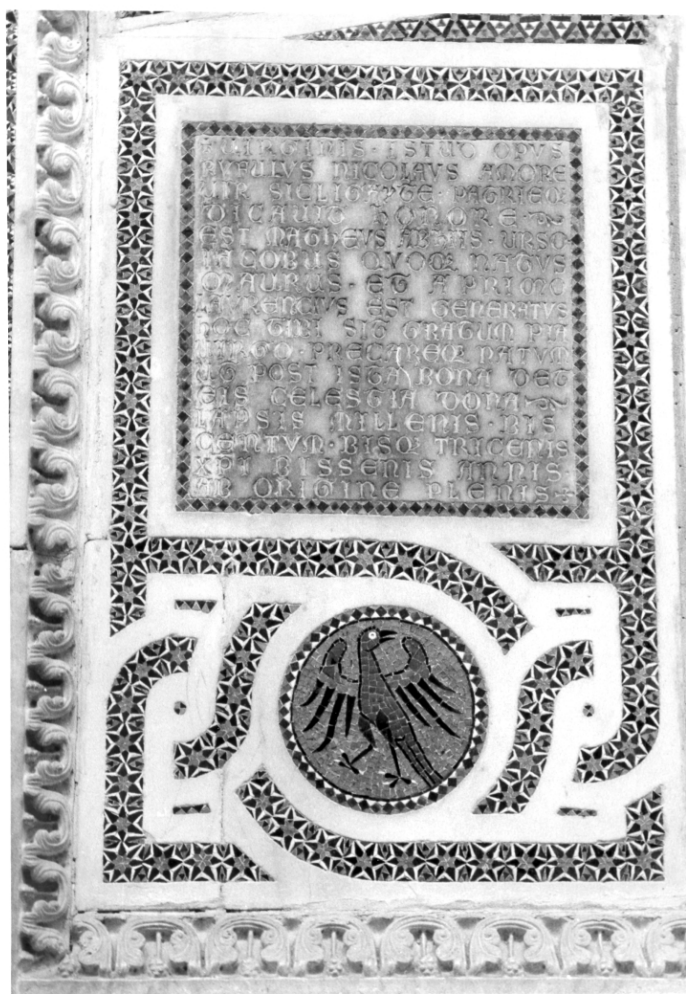 VIRGINIS · ISTUT OPVS
RVFULVS NICOLAVS AMORE
VIR SICLIGAYTE · PATRIEQ
DICAVIT HONORE ·
EST MATHEVS AB HIS · URSO
IACOBUS QUOQ NATVS
MAURUS · ET A PRIMO
LAURENCIVS EST GENERATVS
HOC TIBI SIT GRATUM PIA
VIRGO · PRECAREQ NATVM
UT POST ISTA BONA DET
EIS CELESTIA DONA
LAPSIS MILLENIS · BIS
CENTVM · BISQ TRICENIS
XPI BISSENIS ANNIS
AB ORIGINE PLENIS